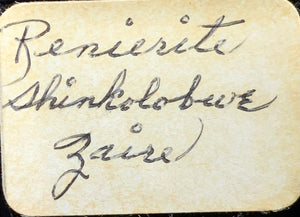 Renierite
Shinkolobwe
Zaire